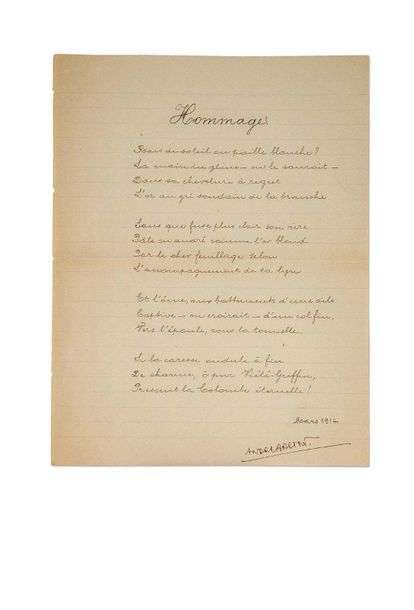 Hommage.
de soleil ou paille blanche?
La main du glaneur ne le saurait —
Dans sa chevelure à
L'or au gré soudain de la branche
Sans que fuse plus clair son rire
Pâle ou ambré comme l'or blond
Par le cher feuillage selon
L'accompagnement de ta lyre
Et l'âme, aux battements d'une aile
Captive — on croirait — d'un col fin,
Vers l'épaule, sous la tonnelle
Si la caresse ondule à fin
De charme, ô pur Vielé-Griffin,
Pressent la Colombe éternelle!
Mars 191
ANDRÉ BRETON.